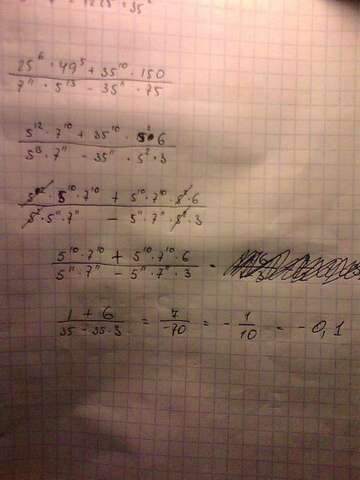 25⁶ · 49⁵ + 35¹⁰ · 150
7¹¹ · 5¹³ − 35¹¹ · 75
5¹² · 7¹⁰ + 35¹⁰ · 5² · 6
5¹³ · 7¹¹ − 35¹¹ · 5² · 3
5² 5¹⁰ · 7¹⁰ + 5¹⁰ · 7¹⁰ · 5² · 6
5² · 5¹¹ · 7¹¹ − 5¹¹ · 7¹¹ · 5² · 3
5¹⁰ · 7¹⁰ + 5¹⁰ · 7¹⁰ · 6 =
5¹¹ · 7¹¹ − 5¹¹ · 7¹¹ · 3
1 + 6 / 35 − 35 · 3 = 7 / −70 = − 1 / 10 = − 0,1